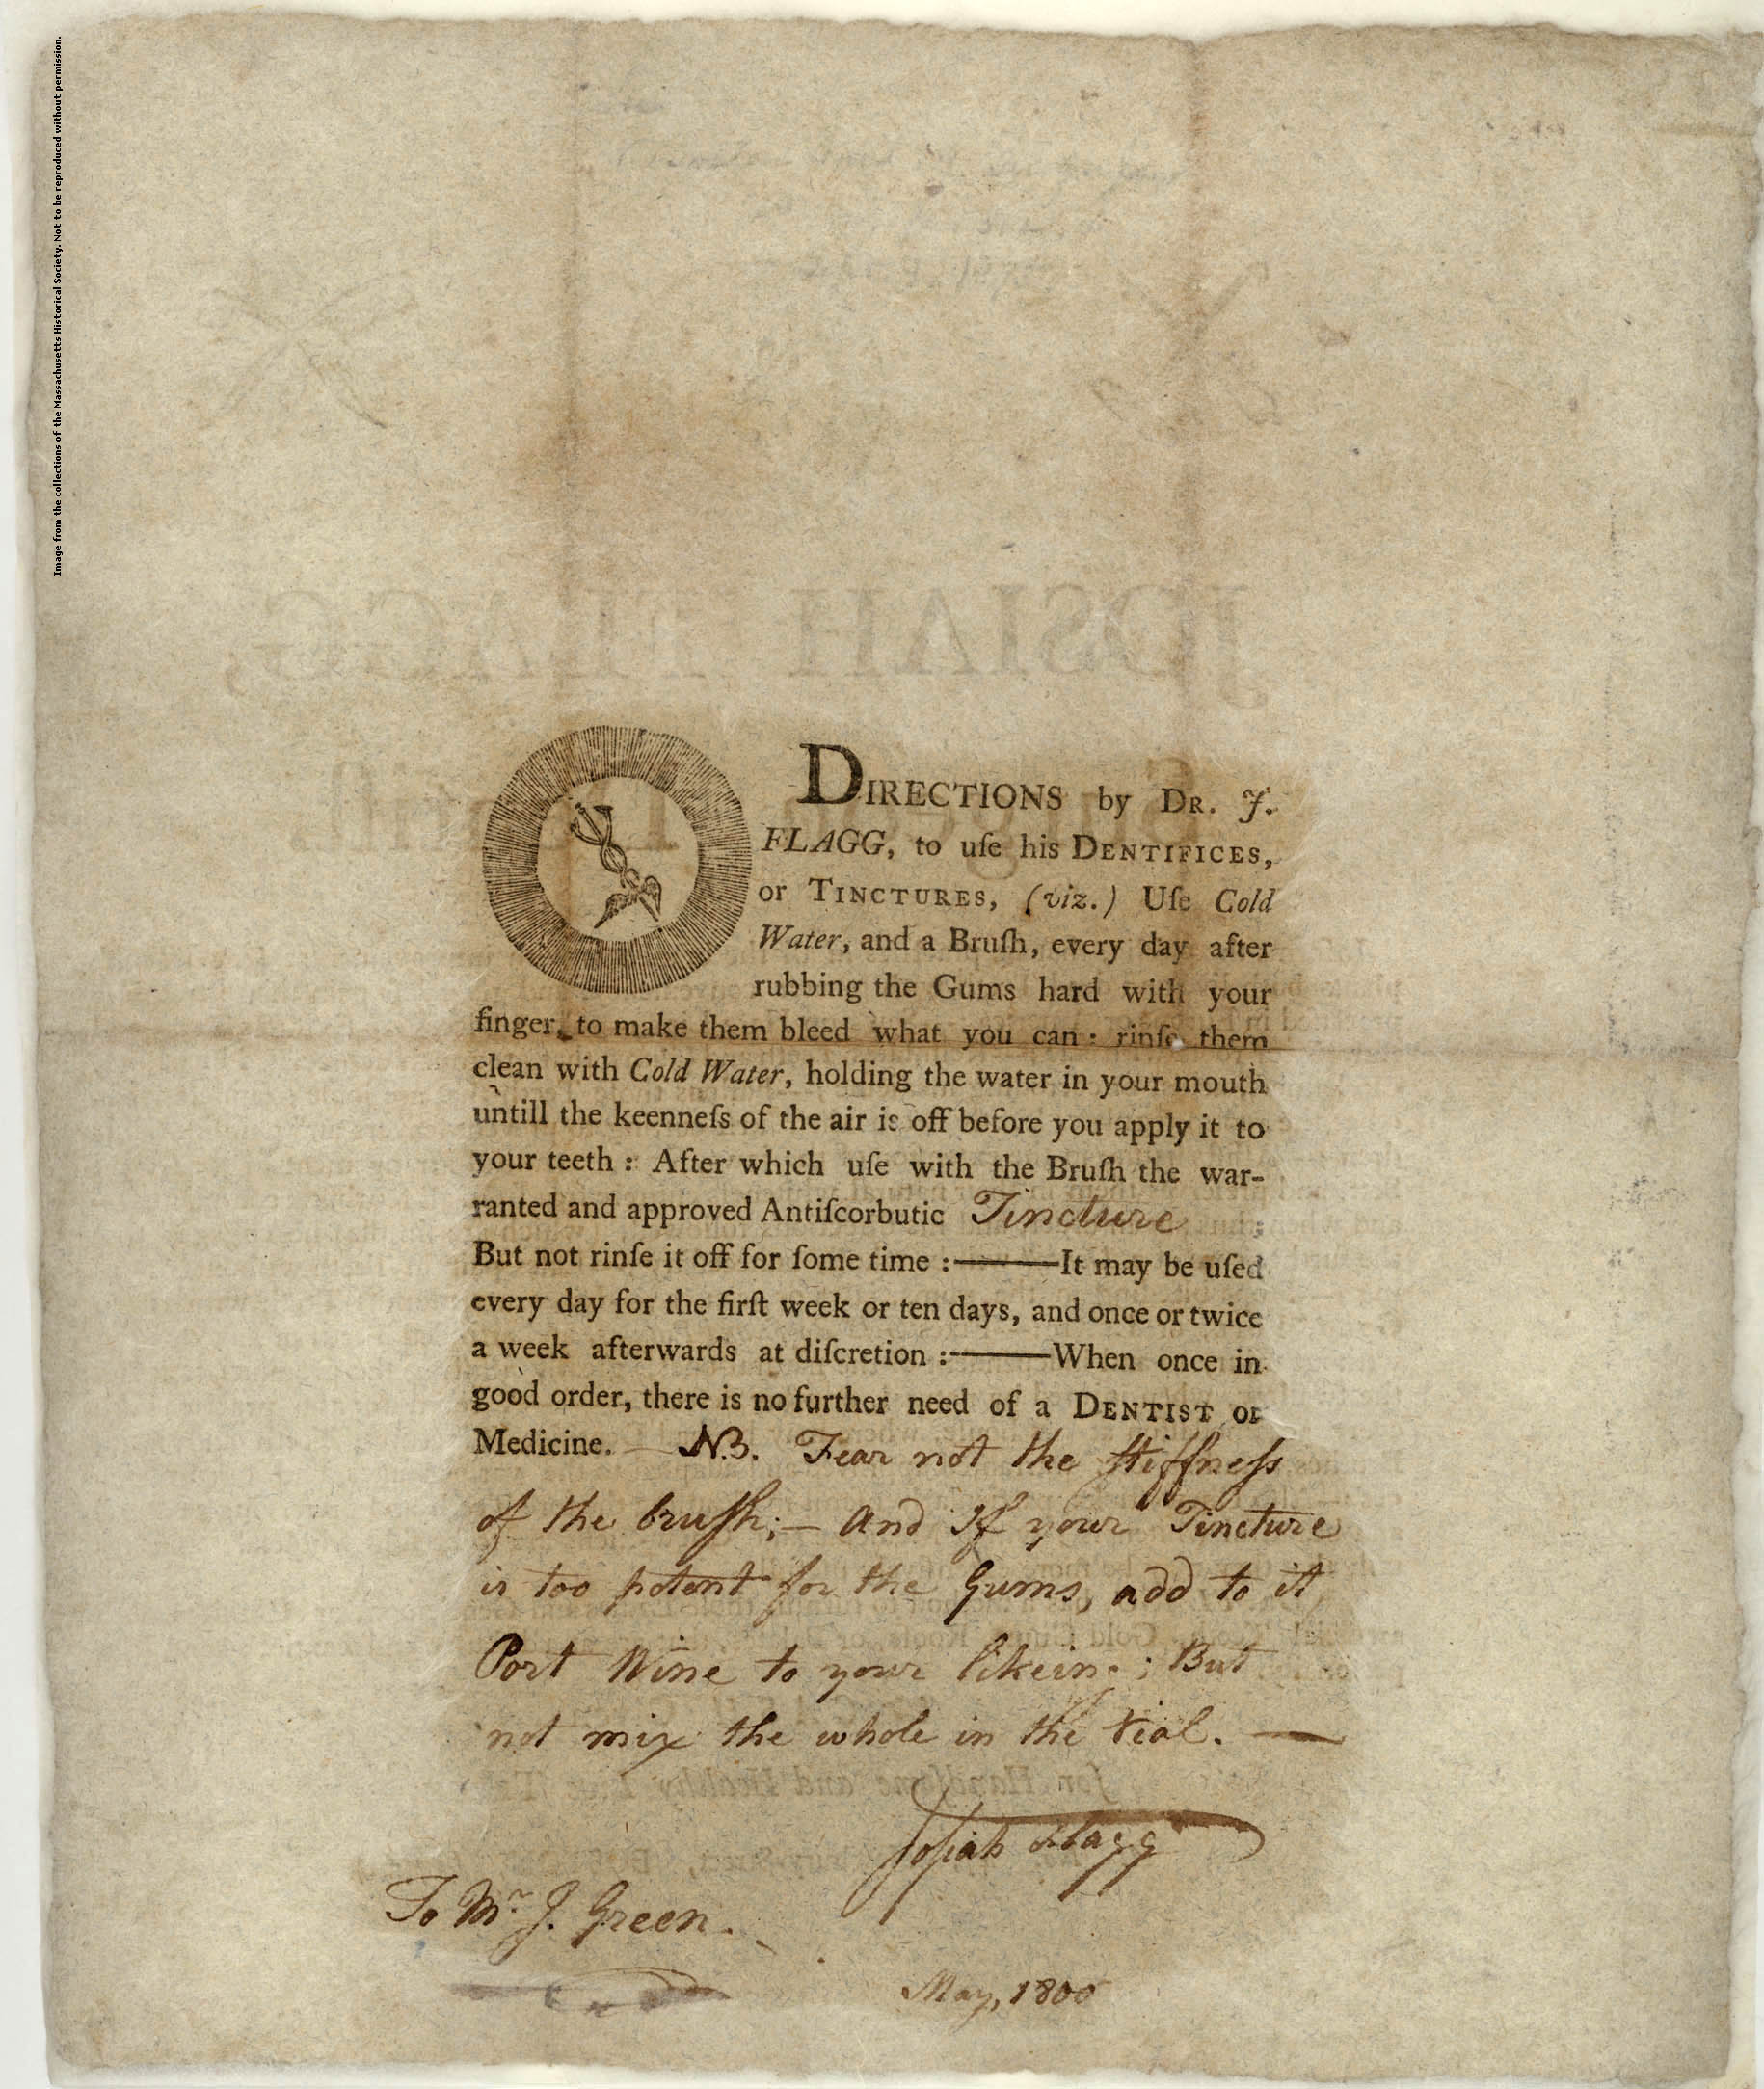 Image from the collections of the Massachusetts Historical Society. Not to be reproduced without permission.
DIRECTIONS by DR. J.
FLAGG, to uſe his DENTIFICES,
or TINCTURES, (viz.) Uſe Cold
Water, and a Bruſh, every day after
rubbing the Gums hard with your
finger, to make them bleed what you can: rinſe them
clean with Cold Water, holding the water in your mouth
untill the keenneſs of the air is off before you apply it to
your teeth: After which uſe with the Bruſh the war-
ranted and approved Antiſcorbutic Tincture ;
But not rinſe it off for ſome time :——It may be uſed
every day for the firſt week or ten days, and once or twice
a week afterwards at diſcretion :——When once in
good order, there is no further need of a DENTIST or
Medicine. — N.B. Fear not the ſtiffneſs
of the bruſh;— And If your Tincture
is too potent for the Gums, add to it
Port Wine to your likeing; But
not mix the whole in the vial. —
Joſiah Flagg
To Mr. J. Green.
May, 1800
JOSIAH FLAGG,
for Handſome and Healthy